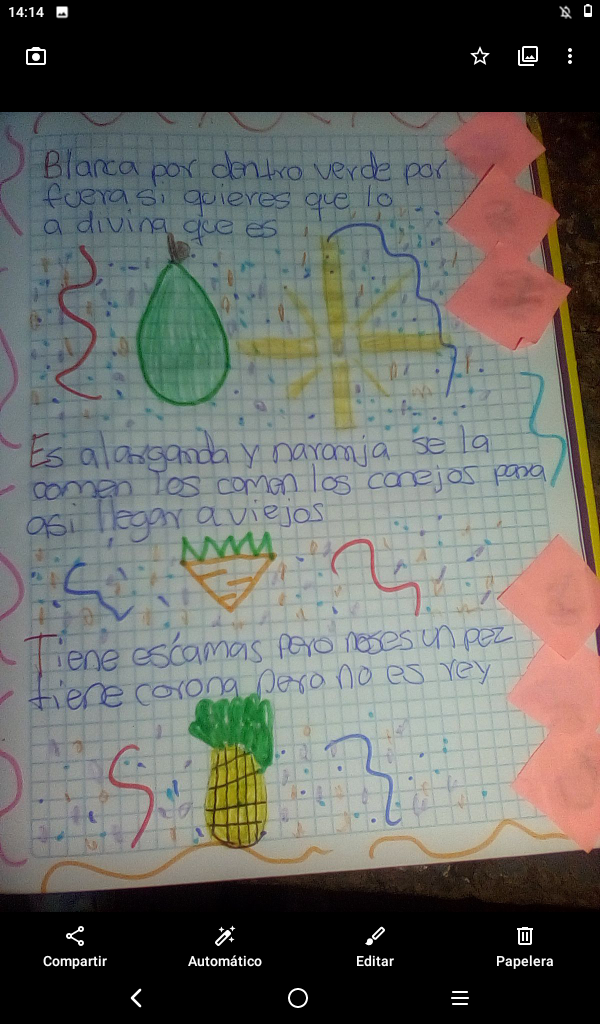 14:14
Blanca por dentro verde por
fuera si quieres que lo
a divina que es
Es alarganda y naranja se la
comen los comen los conejos para
asi llegar a viejos
Tiene escamas pero noses un pez
tiene corona pero no es rey
Compartir
Automático
Editar
Papelera